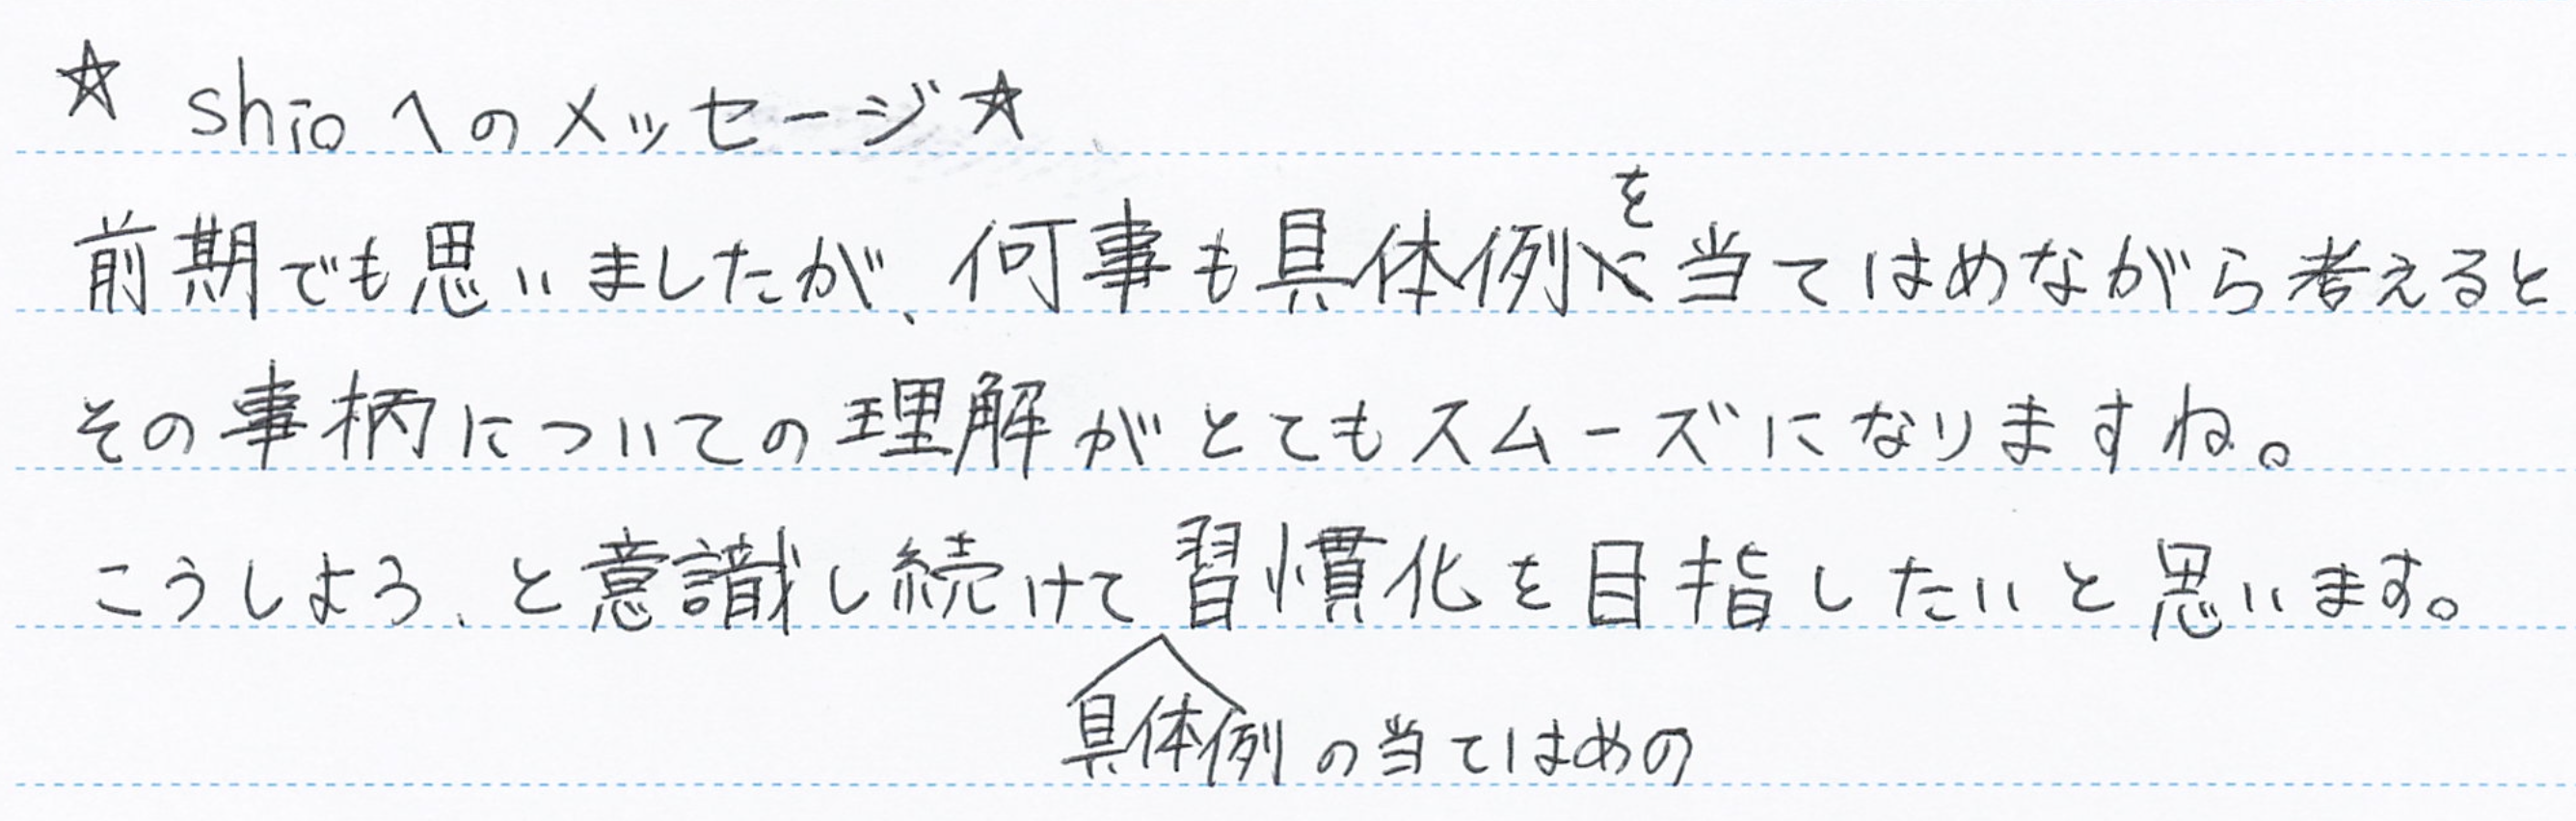 ☆ shioへのメッセージ☆
前期でも思いましたが、何事も具体例を当てはめながら考えると
その事柄についての理解がとてもスムーズになりますね。
こうしよう、と意識し続けて習慣化を目指したいと思います。
具体例の当てはめの